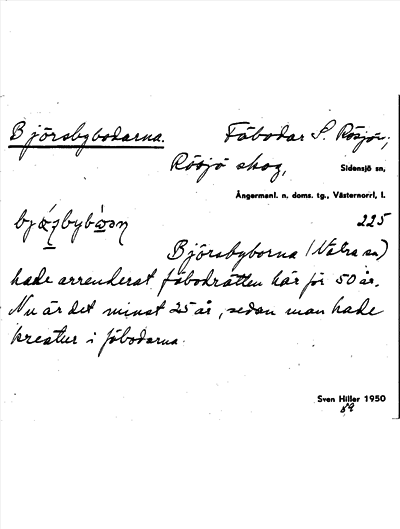 Björsbybodarna. Fäbodar S. Rösjön,
Rösjö skog, Sidensjö sn,
Ångermanl. n. doms. tg., Västernorrl, l.
225
Björsbyborna (Nätra sn)
hade arrenderat fäbodrätten här för 50 år.
Nu är det minst 25 år, sedan man hade
kreatur i fäbodarna.
Sven Hiller 1950
89